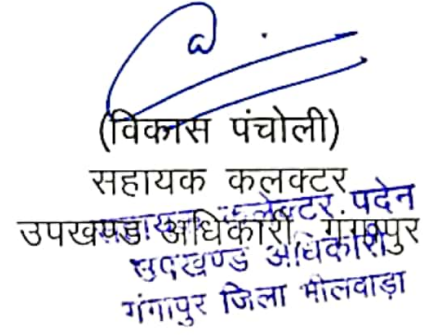 (विकास पंचोली)
सहायक कलक्टर
उपखण्ड अधिकारी, गंगापुर
सहायक कलेक्टर पदेन
उपखण्ड अधिकारी
गंगापुर जिला भीलवाड़ा